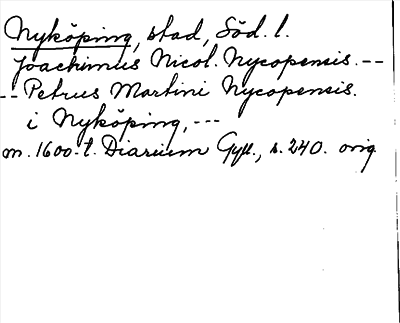 Nyköping, stad, Söd. l.
Joachimus Nicol. Nycopensis. --
-- Petrus Martini Nycopensis.
i Nyköping, ---
m. 1600-t. Diarium Gyll., s. 240. orig